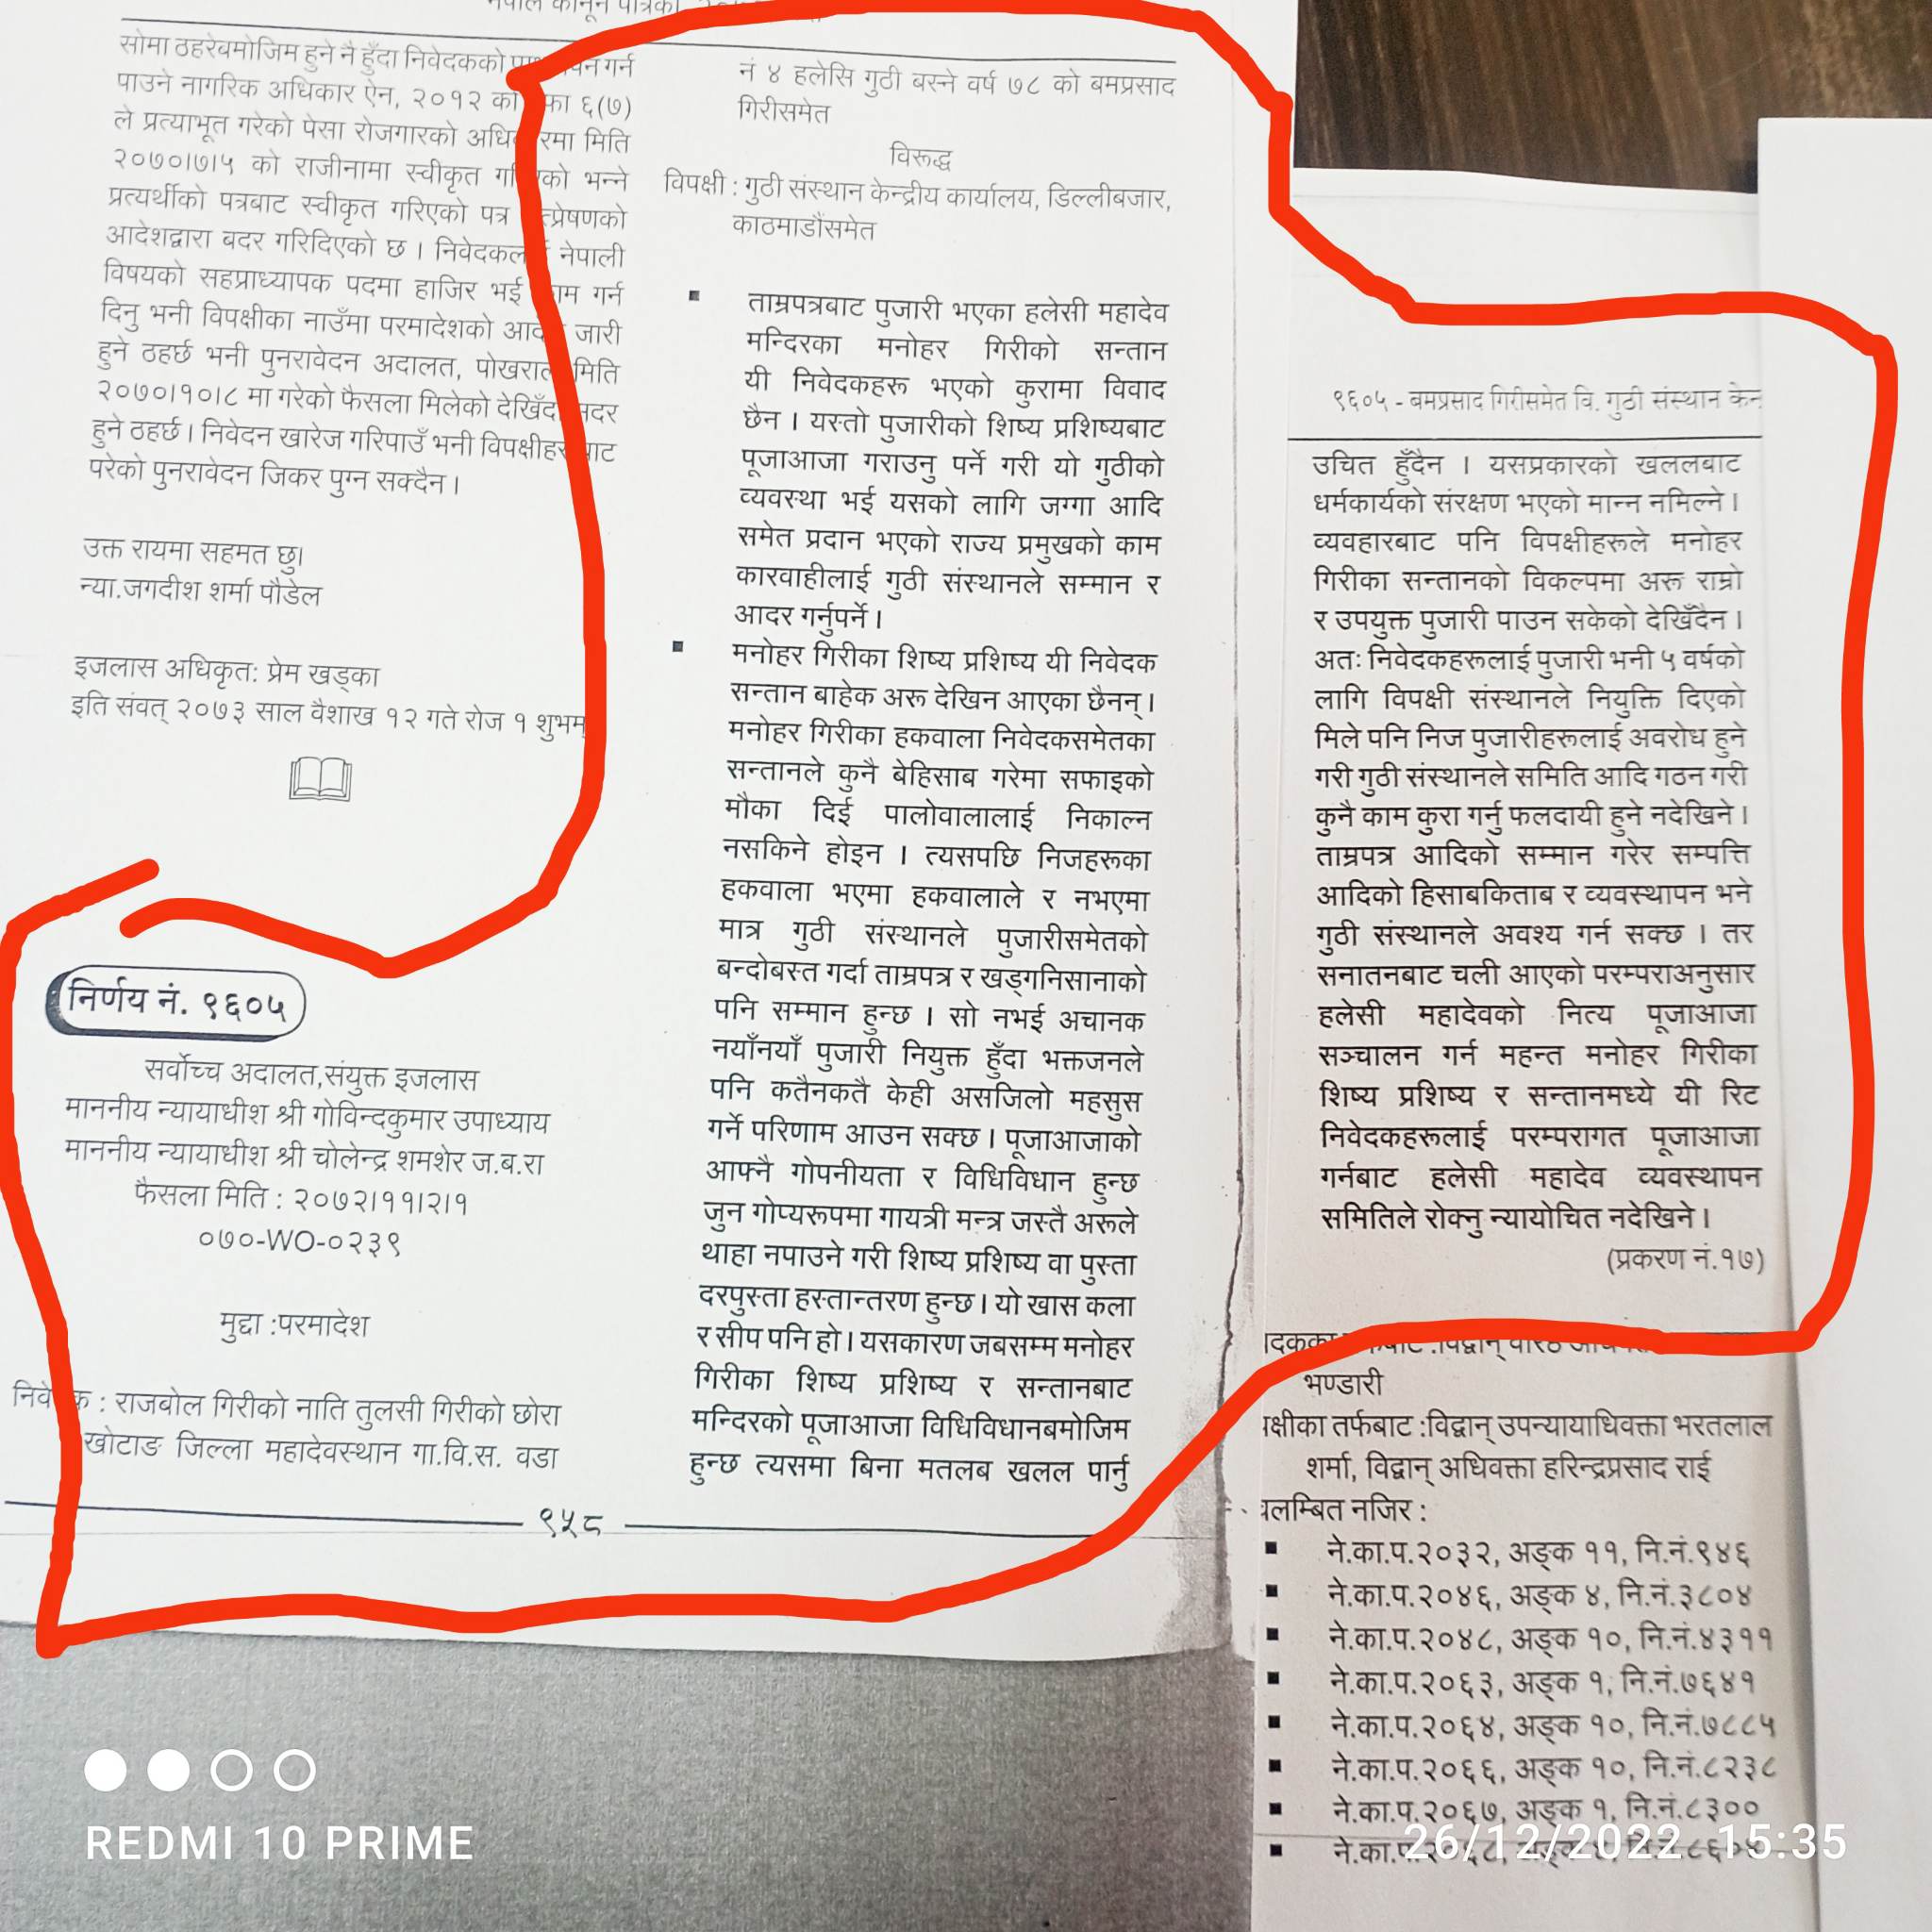 नेपाल कानून पत्रिका
सोमा ठहरेबमोजिम हुने नै हुँदा निवेदकको गर्न
पाउने नागरिक अधिकार ऐन, २०१२ को फा ६(७)
ले प्रत्याभूत गरेको पेसा रोजगारको रमा मिति
२०७०।७।५ को राजीनामा स्वीकृत को भन्ने
प्रत्यर्थीको पत्रबाट स्वीकृत गरिएको पत्र त्प्रेषणको
आदेशद्वारा बदर गरिदिएको छ । नेपाली
विषयको सहप्राध्यापक पदमा हाजिर भई गर्न
दिनु भनी विपक्षीका नाउँमा परमादेशको जारी
हुने ठहर्छ भनी पुनरावेदन अदालत, मिति
२०७०।१०।८ मा गरेको फैसला मिलेको
हुने ठहर्छ । निवेदन खारेज गरिपाउँ भनी
परेको पुनरावेदन जिकर पुग्न सक्दैन ।
उक्त रायमा सहमत छु।
न्या.जगदीश शर्मा पौडेल
इजलास अधिकृतः प्रेम खड्का
इति संवत् २०७३ साल वैशाख १२ गते रोज १ शुभम्
निर्णय नं. ९६०५
सर्वोच्च अदालत,संयुक्त इजलास
माननीय न्यायाधीश श्री गोविन्दकुमार उपाध्याय
माननीय न्यायाधीश श्री चोलेन्द्र शमशेर ज.ब.रा
फैसला मिति : २०७२।११।२।१
०७०-WO-०२३९
मुद्दा :परमादेश
: राजबोल गिरीको नाति तुलसी गिरीको छोरा
खोटाङ जिल्ला महादेवस्थान गा.वि.स. वडा
नं ४ हलेसि गुठी बस्ने वर्ष ७८ को बमप्रसाद
गिरीसमेत
विरूद्ध
विपक्षी : गुठी संस्थान केन्द्रीय कार्यालय, डिल्लीबजार,
काठमाडौंसमेत
▪ ताम्रपत्रबाट पुजारी भएका हलेसी महादेव
मन्दिरका मनोहर गिरीको सन्तान
यी निवेदकहरू भएको कुरामा विवाद
छैन । यस्तो पुजारीको शिष्य प्रशिष्यबाट
पूजाआजा गराउनु पर्ने गरी यो गुठीको
व्यवस्था भई यसको लागि जग्गा आदि
समेत प्रदान भएको राज्य प्रमुखको काम
कारवाहीलाई गुठी संस्थानले सम्मान र
आदर गर्नुपर्ने ।
▪ मनोहर गिरीका शिष्य प्रशिष्य यी निवेदक
सन्तान बाहेक अरू देखिन आएका छैनन् ।
मनोहर गिरीका हकवाला निवेदकसमेतका
सन्तानले कुनै बेहिसाब गरेमा सफाइको
मौका दिई पालोवालालाई निकाल्न
नसकिने होइन । त्यसपछि निजहरूका
हकवाला भएमा हकवालाले र नभएमा
मात्र गुठी संस्थानले पुजारीसमेतको
बन्दोबस्त गर्दा ताम्रपत्र र खड्गनिसानाको
पनि सम्मान हुन्छ । सो नभई अचानक
नयाँनयाँ पुजारी नियुक्त हुँदा भक्तजनले
पनि कतैनकतै केही असजिलो महसुस
गर्ने परिणाम आउन सक्छ । पूजाआजाको
आफ्नै गोपनीयता र विधिविधान हुन्छ
जुन गोप्यरूपमा गायत्री मन्त्र जस्तै अरूले
थाहा नपाउने गरी शिष्य प्रशिष्य वा पुस्ता
दरपुस्ता हस्तान्तरण हुन्छ । यो खास कला
र सीप पनि हो । यसकारण जबसम्म मनोहर
गिरीका शिष्य प्रशिष्य र सन्तानबाट
मन्दिरको पूजाआजा विधिविधानबमोजिम
हुन्छ त्यसमा बिना मतलब खलल पार्नु
९५८
९६०५ - बमप्रसाद गिरीसमेत वि. गुठी संस्थान केन
उचित हुँदैन । यसप्रकारको खललबाट
धर्मकार्यको संरक्षण भएको मान्न नमिल्ने ।
व्यवहारबाट पनि विपक्षीहरूले मनोहर
गिरीका सन्तानको विकल्पमा अरू राम्रो
र उपयुक्त पुजारी पाउन सकेको देखिँदैन ।
अतः निवेदकहरूलाई पुजारी भनी ५ वर्षको
लागि विपक्षी संस्थानले नियुक्ति दिएको
मिले पनि निज पुजारीहरूलाई अवरोध हुने
गरी गुठी संस्थानले समिति आदि गठन गरी
कुनै काम कुरा गर्नु फलदायी हुने नदेखिने ।
ताम्रपत्र आदिको सम्मान गरेर सम्पत्ति
आदिको हिसाबकिताब र व्यवस्थापन भने
गुठी संस्थानले अवश्य गर्न सक्छ । तर
सनातनबाट चली आएको परम्पराअनुसार
हलेसी महादेवको नित्य पूजाआजा
सञ्चालन गर्न महन्त मनोहर गिरीका
शिष्य प्रशिष्य र सन्तानमध्ये यी रिट
निवेदकहरूलाई परम्परागत पूजाआजा
गर्नबाट हलेसी महादेव व्यवस्थापन
समितिले रोक्नु न्यायोचित नदेखिने ।
(प्रकरण नं.१७)
भण्डारी
पक्षीका तर्फबाट :विद्वान् उपन्यायाधिवक्ता भरतलाल
शर्मा, विद्वान् अधिवक्ता हरिन्द्रप्रसाद राई
वलम्बित नजिर :
▪ ने.का.प.२०३२, अङ्क ११, नि.नं.९४६
▪ ने.का.प.२०४६, अङ्क ४, नि.नं.३८०४
▪ ने.का.प.२०४८, अङ्क १०, नि.नं.४३११
▪ ने.का.प.२०६३, अङ्क १, नि.नं.७६४१
▪ ने.का.प.२०६४, अङ्क १०, नि.नं.७८८५
▪ ने.का.प.२०६६, अङ्क १०, नि.नं.८२३८
▪ ने.का.प.२०६७, अङ्क १, नि.नं.८३००
REDMI 10 PRIME
26/12/2022 15:35